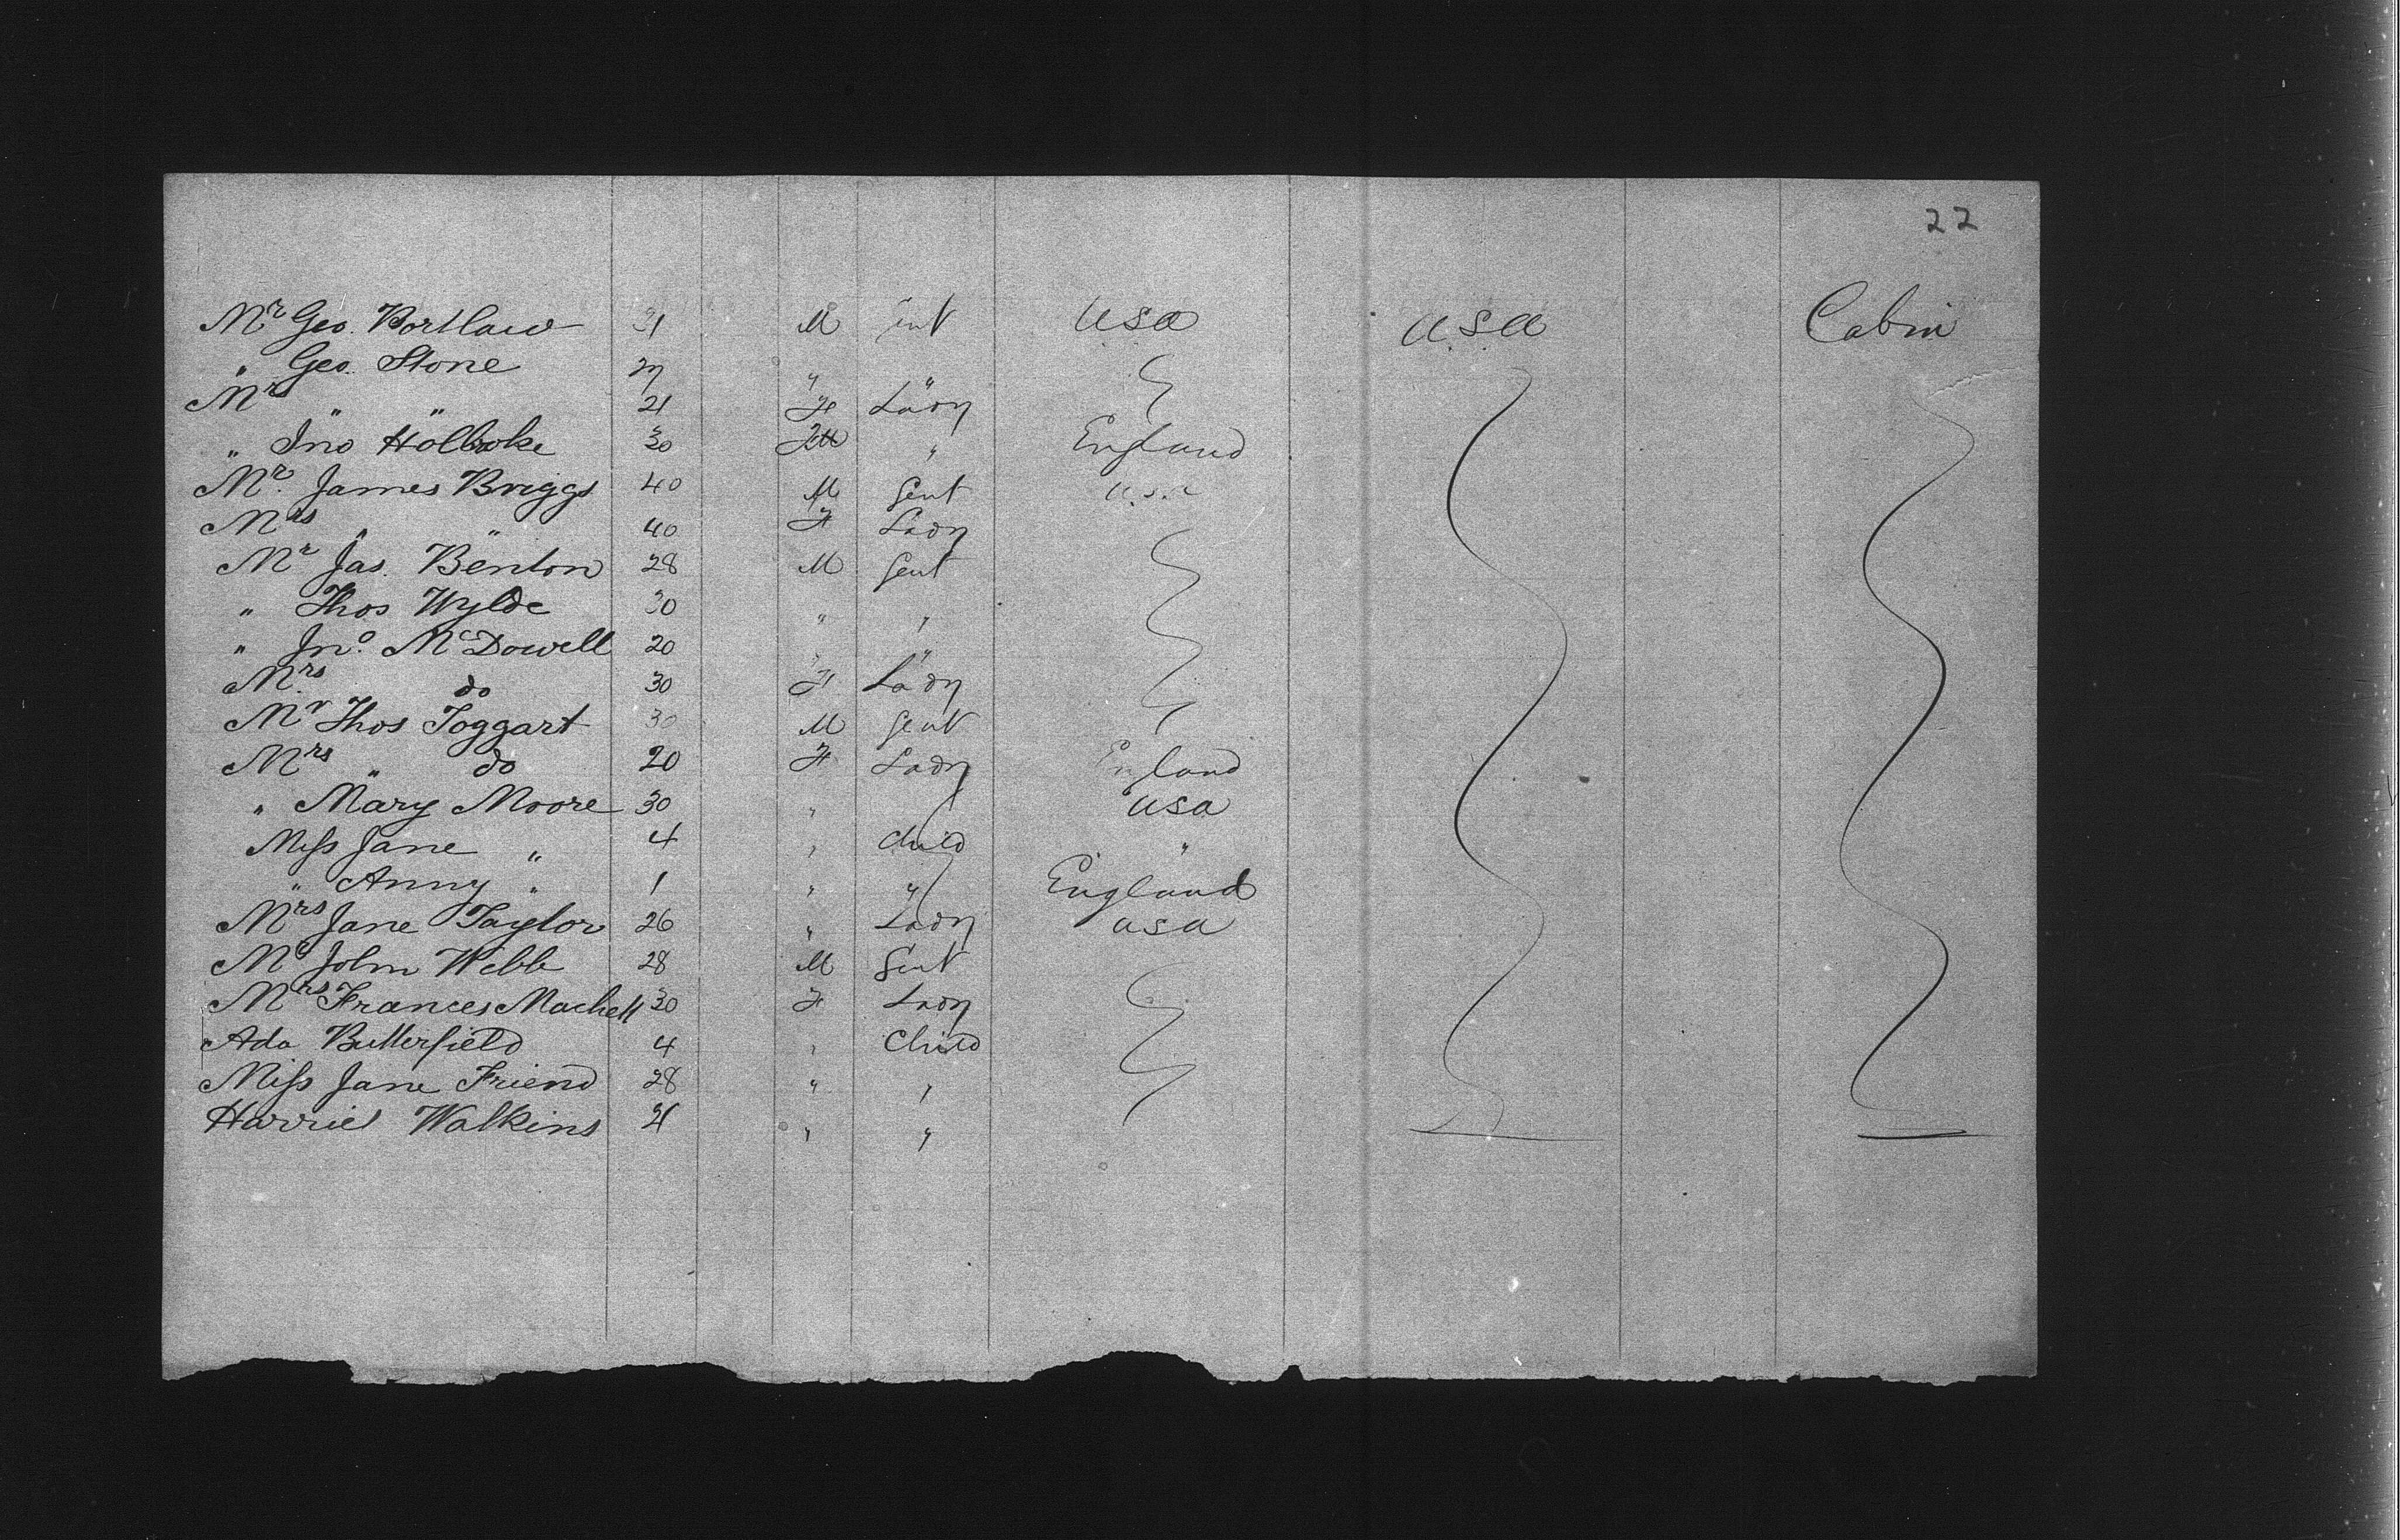 22
Mr Geo. Portlaw 31 M Gent USA U.S.A Cabin
" Geo. Stone 27 " "
Mrs " " 21 F Lady
" Jno Holbroke 30 F " England
Mr. James Briggs 40 M Gent U.S.A
Mrs " " 40 F Lady
Mr Jas. Benton 28 M Gent
" Thos Wylde 30 " "
" Jno. McDowell 20 " "
Mrs. do 30 F Lady
Mr Thos Toggart 30 M Gent
Mrs " do 20 F Lady England
" Mary Moore 30 " USA
Miss Jane " 4 " Child "
" Anny " 1 " " England
Mrs Jane Taylor 26 " Lady USA
Mr John Webb 28 M Gent
Mrs Frances Machell 30 F Lady
Ada Butterfield 4 " Child
Miss Jane Friend 28 " "
Harriet Watkins 21 " "